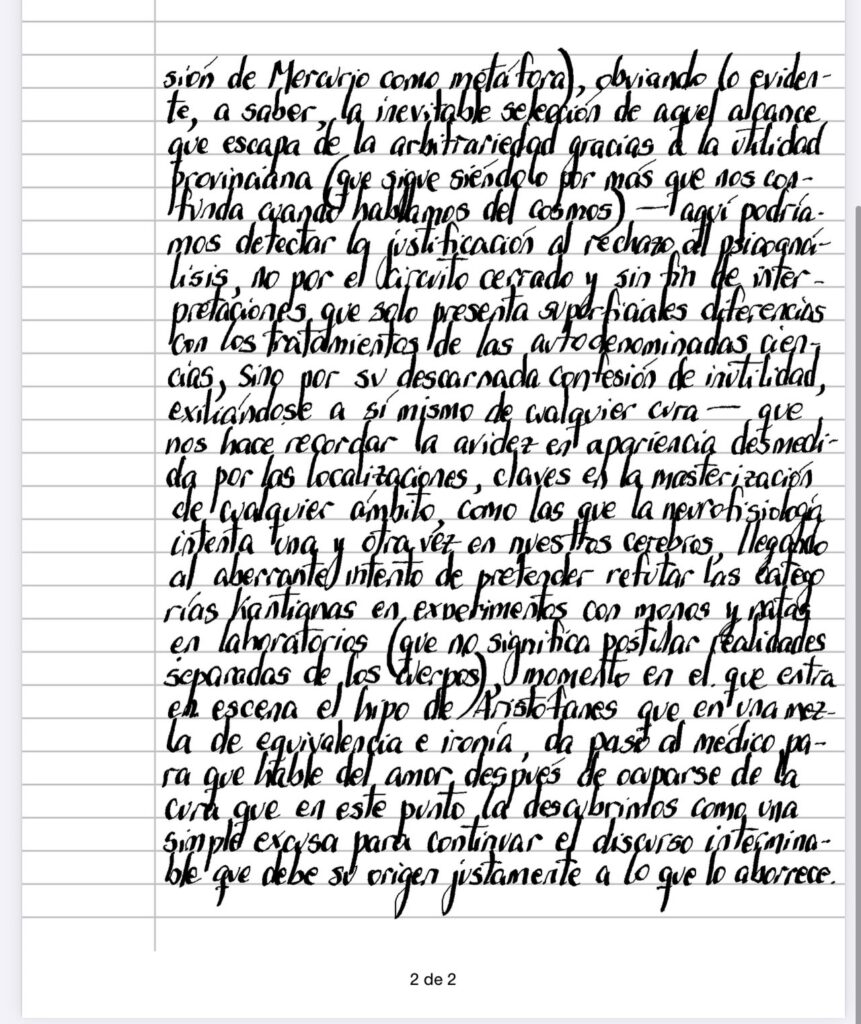 sión de Mercurio como metáfora), obviando lo eviden-
te, a saber, la inevitable selección de aquel alcance
que escapa de la arbitrariedad gracias a la utilidad
provinciana (que sigue siéndolo por más que nos con-
funda cuando hablamos del cosmos) — aquí podría-
mos detectar la justificación al rechazo al psicoaná-
lisis, no por el circuito cerrado y sin fin de inter-
pretaciones que solo presenta superficiales diferencias
con los tratamientos de las autodenominadas cien-
cias, sino por su descarnada confesión de inutilidad,
exiliándose a sí mismo de cualquier cura — que
nos hace recordar la avidez en apariencia desmedi-
da por las localizaciones, claves en la masterización
de cualquier ámbito, como las que la neurofisiología
intenta una y otra vez en nuestros cerebros, llegando
al aberrante intento de pretender refutar las catego
rías kantianas en experimentos con monos y ratas
en laboratorios (que no significa postular realidades
separadas de los cuerpos), momento en el que entra
en escena el hipo de Aristófanes que en una mez-
cla de equivalencia e ironía, da paso al médico pa-
ra que hable del amor después de ocuparse de la
cura que en este punto la descubrimos como una
simple excusa para continuar el discurso intermina-
ble que debe su origen justamente a lo que lo aborrece.
2 de 2